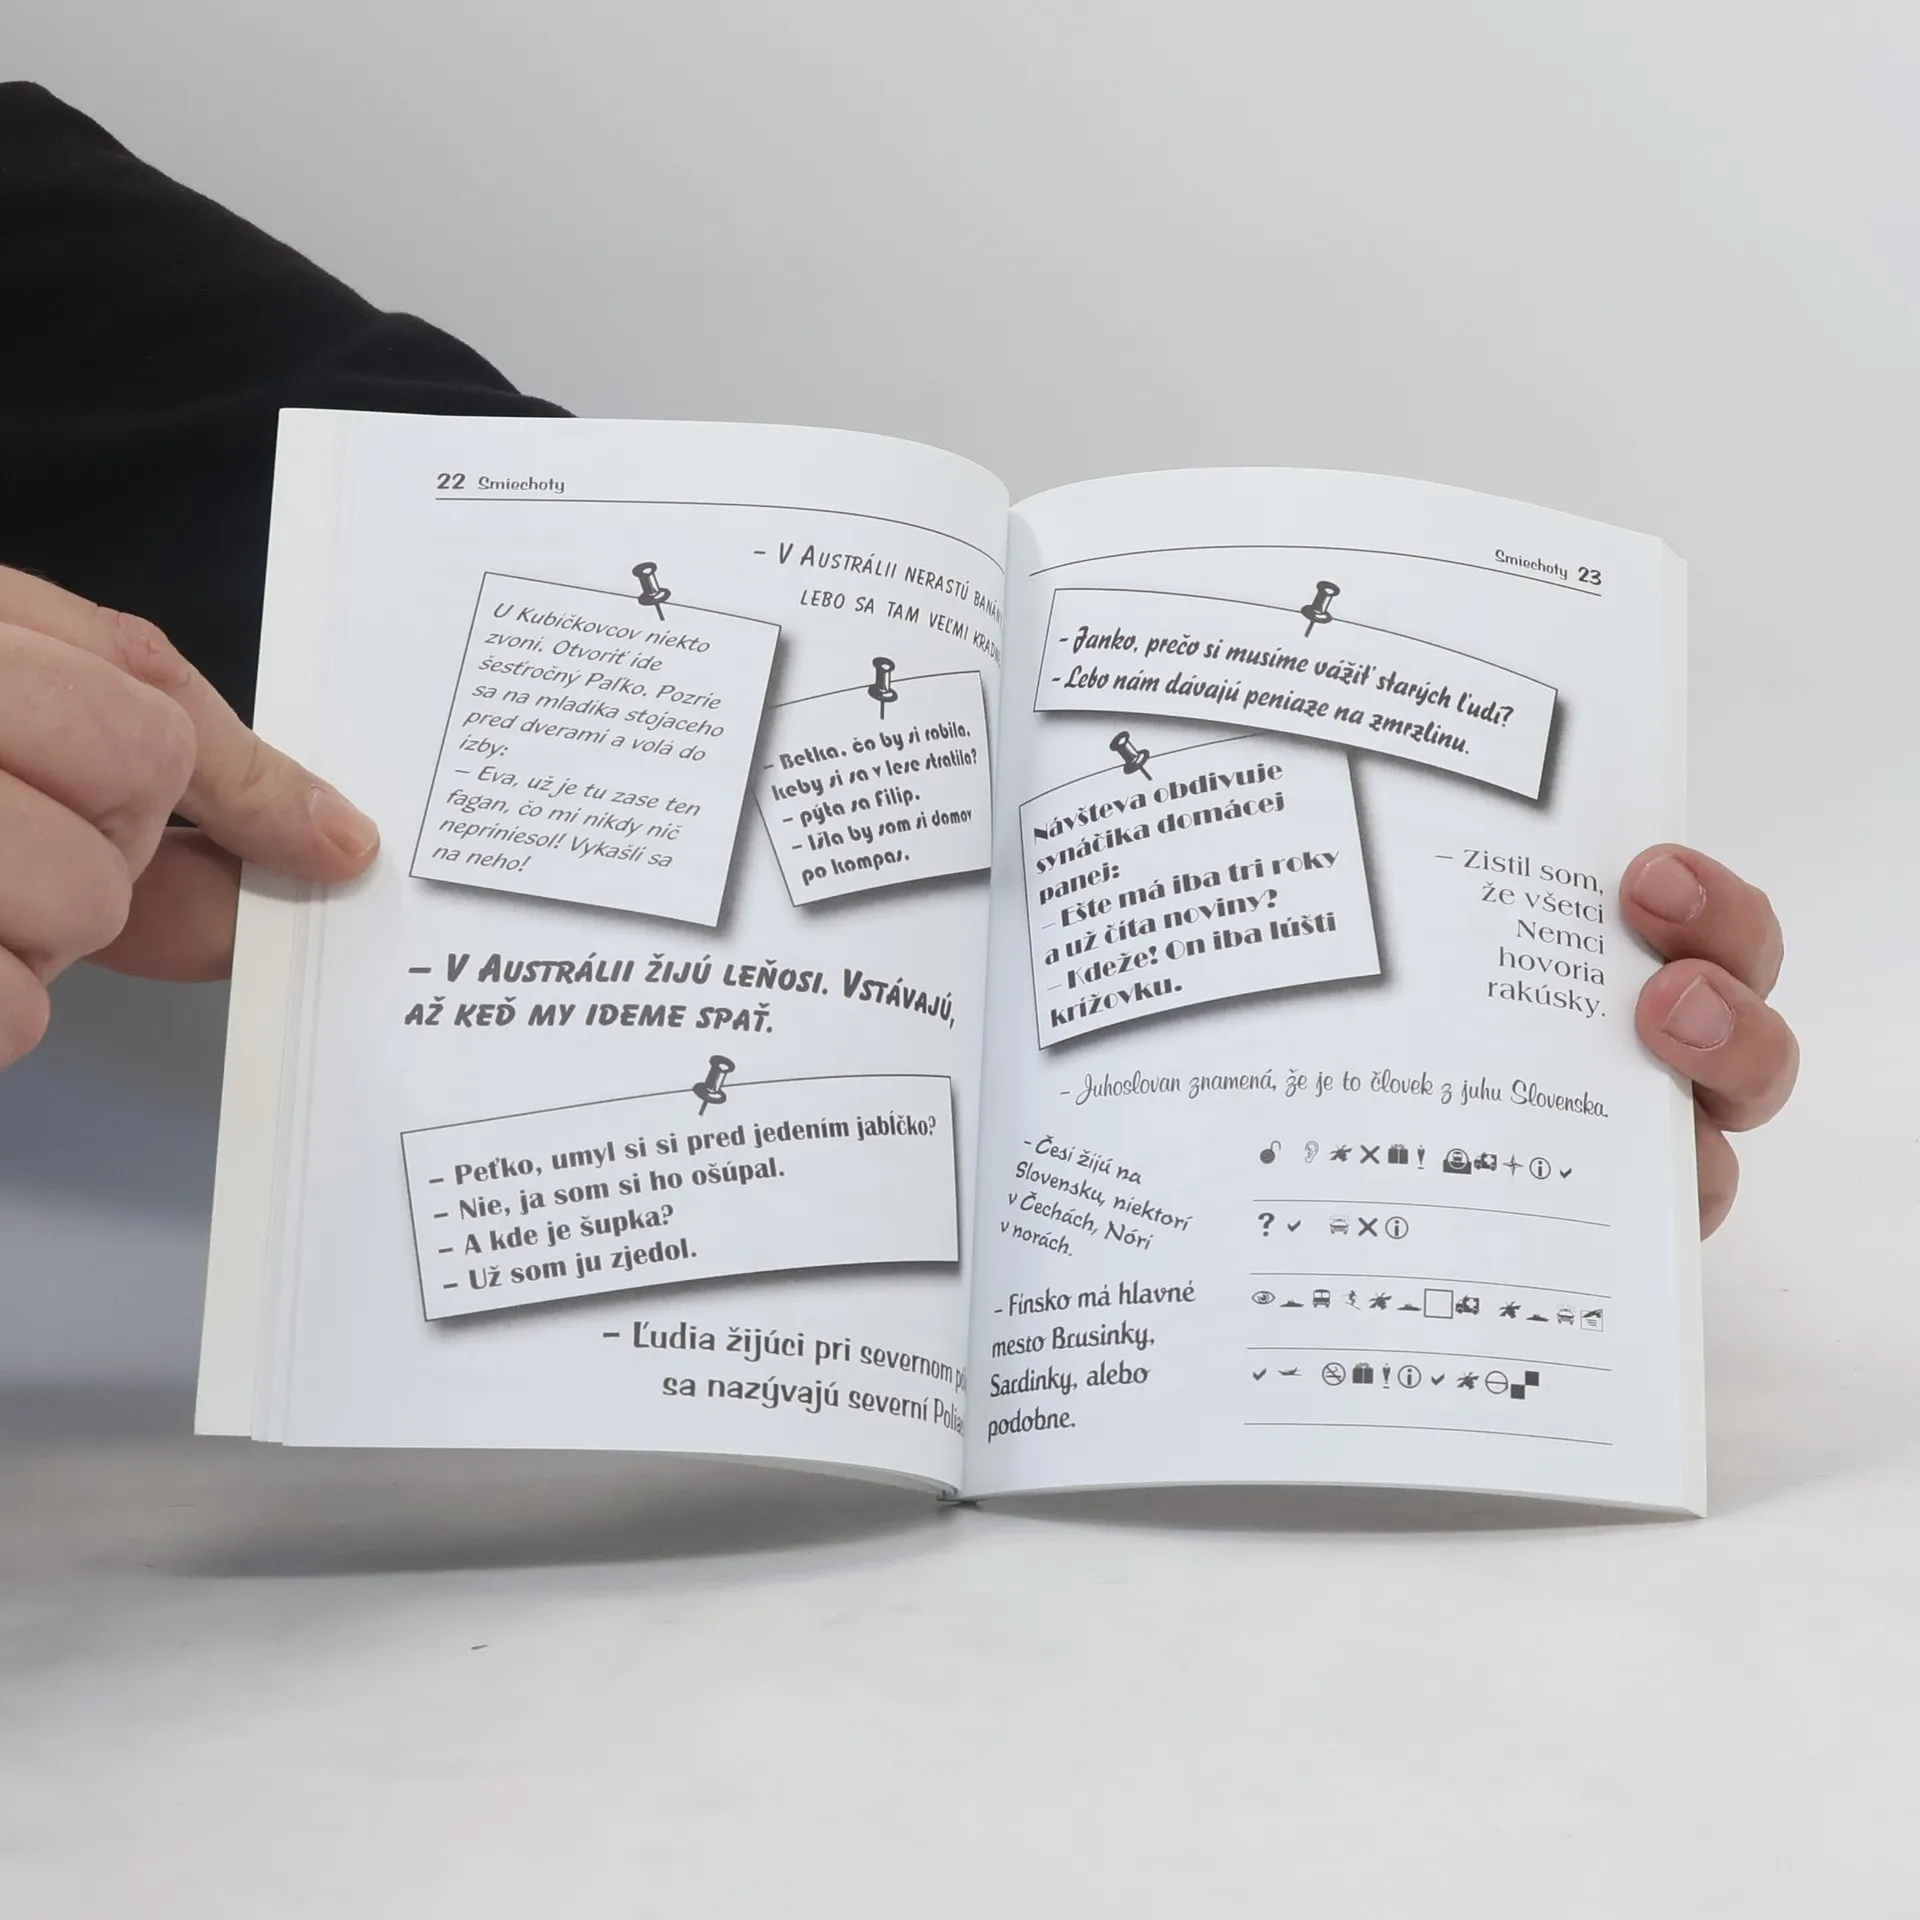 22 Smiechoty
– V AUSTRÁLII NERASTÚ
LEBO SA TAM VEĽMI
U Kubičkovcov niekto
zvoní. Otvoriť ide
šesťročný Paľko. Pozrie
sa na mladíka stojaceho
pred dverami a volá do
izby:
– Eva, už je tu zase ten
fagan, čo mi nikdy nič
nepriniesol! Vykašli sa
na neho!
– Betka, čo by si robila,
keby si sa v lese stratila?
– pýta sa Filip.
– Išla by som si domov
po kompas.
– V AUSTRÁLII ŽIJÚ LEŇOSI. VSTÁVAJÚ,
AŽ KEĎ MY IDEME SPAŤ.
– Peťko, umyl si si pred jedením jabĺčko?
– Nie, ja som si ho ošúpal.
– A kde je šupka?
– Už som ju zjedol.
– Ľudia žijúci pri severnom
sa nazývajú severní
Smiechoty 23
– Janko, prečo si musíme vážiť starých ľudí?
– Lebo nám dávajú peniaze na zmrzlinu.
Návšteva obdivuje
synáčika domácej
panej:
– Ešte má iba tri roky
a už číta noviny?
– Kdeže! On iba lúšti
krížovku.
– Zistil som,
že všetci
Nemci
hovoria
rakúsky.
– Juhoslovan znamená, že je to človek z juhu Slovenska.
– Česi žijú na
Slovensku, niektorí
v Čechách, Nóri
v norách.
– Fínsko má hlavné
mesto Brusinky,
Sardinky, alebo
podobne.